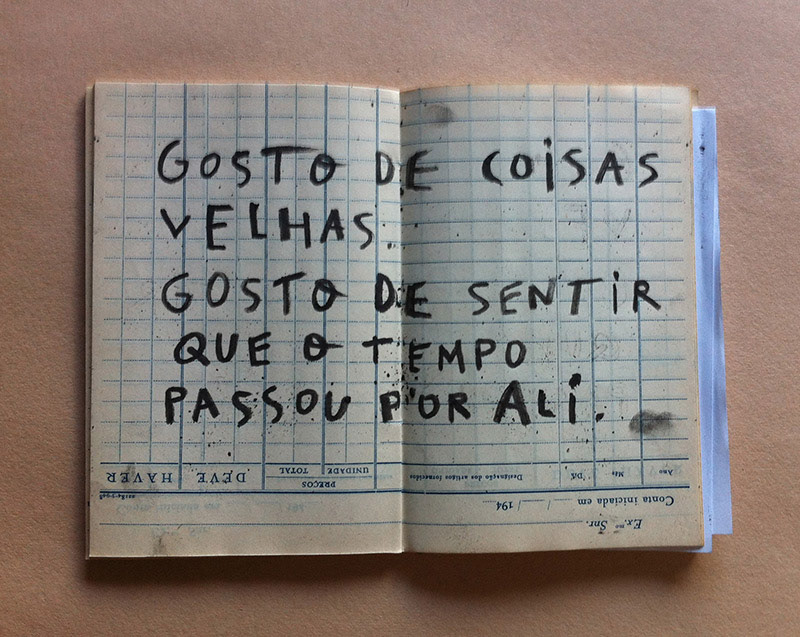 GOSTO DE COiSAS
VELHAS.
GOSTO DE SENTiR
QUE O TEMPO
PASSOU POR ALi.
Ex.mo Snr.
Conta iniciada em / / 194
Ano Mês DIA Designação dos artigos fornecidos PREÇOS UNIDADE TOTAL DEVE HAVER